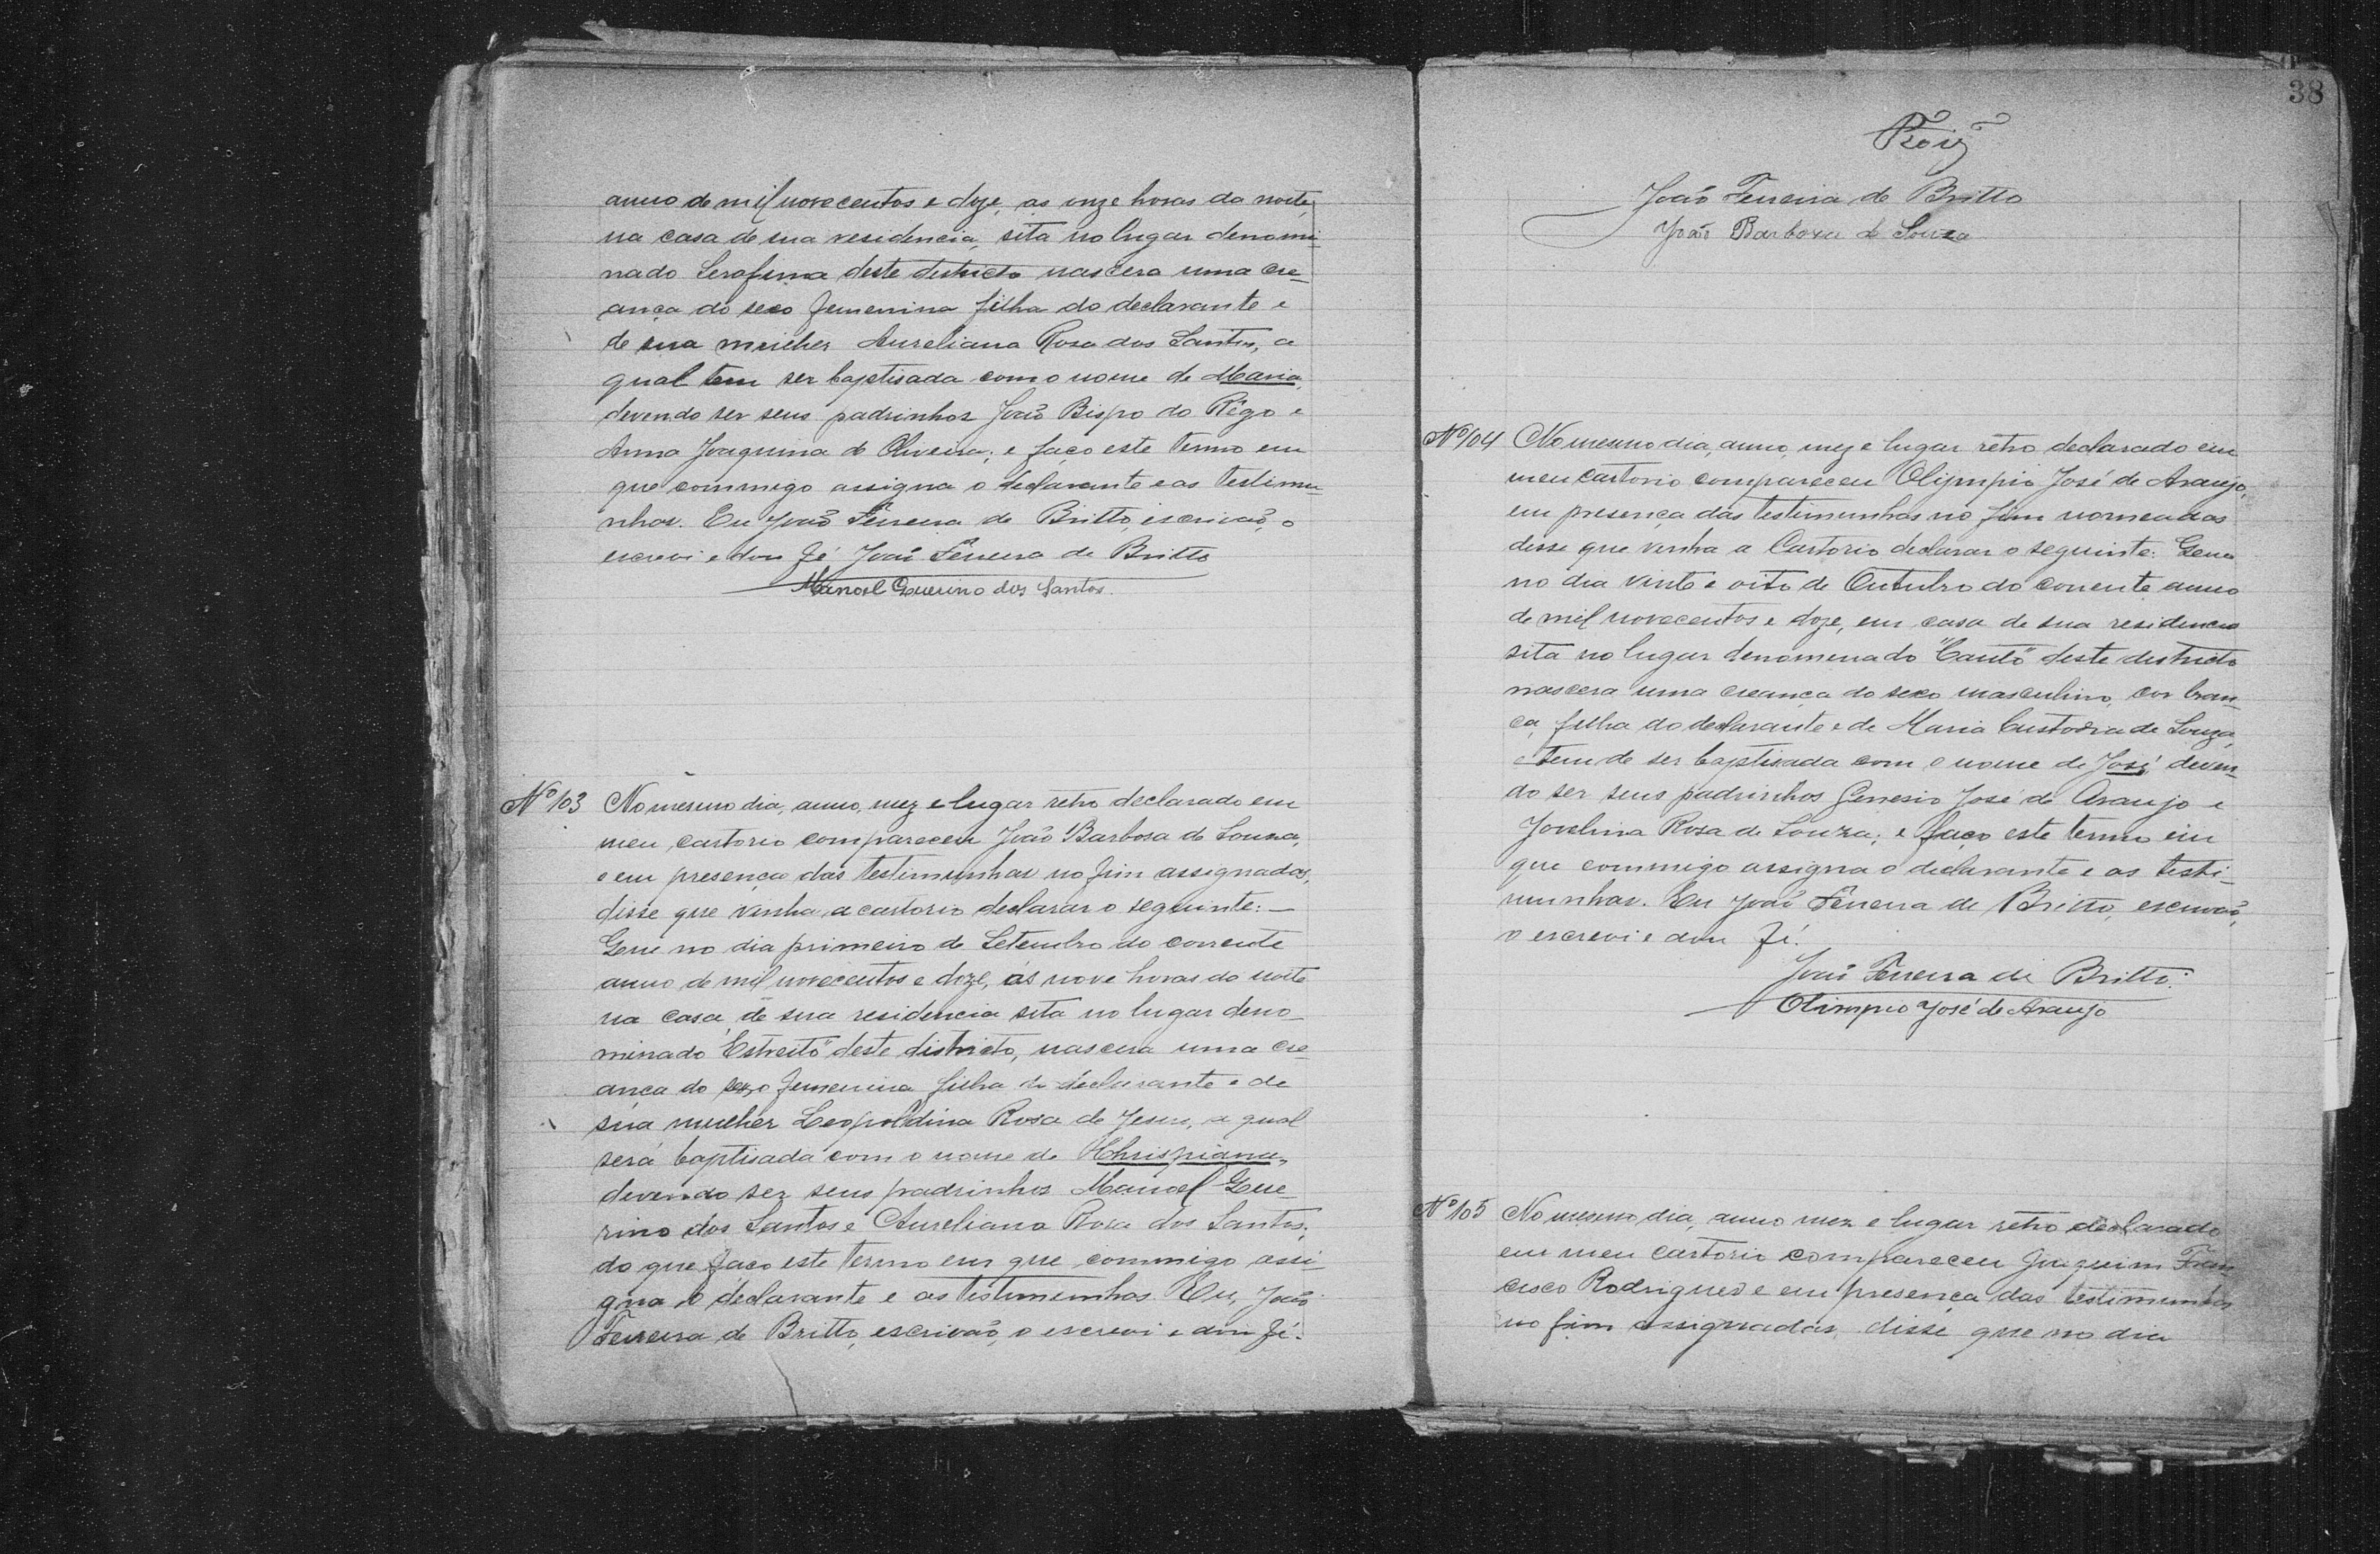 anno de mil novecentos e doze, as onze horas da noite,
na casa de sua residencia, sita no lugar denomi-
nado Serafina deste districto nascera uma cre-
ança do sexo femenina filha do declarante e
de sua mulher Aureliana Rosa dos Santos, a
qual tem ser baptisada com o nome de Maria,
devendo ser seus padrinhos João Bispo do Rêgo e
Anna Joaquina de Oliveira; e faço este termo em
que commigo assigna o declarante e as testimu-
nhas. Eu João Ferreira de Britto, escrivão, o
escrevi e dou fé João Ferreira de Britto
Manoel Querino dos Santos.
Nº 103 No mesmo dia, anno, mez e lugar retro declarado em
meu cartorio compareceu João Barbosa de Souza,
e em presença das testimunhas no fim assignadas,
disse que vinha a cartorio declarar o seguinte: —
Que no dia primeiro de Setembro do corrente
anno de mil novecentos e doze, ás nove horas da noite
na casa de sua residencia sita no lugar deno-
minado "Estreito" deste districto, nascera uma cre-
ança do sexo femenina filha do declarante e de
sua mulher Leopoldina Rosa de Jesus, a qual
será baptisada com o nome de Chrispiana,
devendo ser seus padrinhos Manoel Que-
rino dos Santos e Aureliana Rosa dos Santos;
do que faço este termo em que commigo assi-
gna o declarante e as testimunhas. Eu, João
Ferreira de Britto, escrivão, o escrevi e dou fé.
38
João Ferreira de Britto
João Barbosa de Souza
Nº 104 No mesmo dia, anno, mez e lugar retro declarado em
meu cartorio compareceu Olijmpio José de Araujo,
em presença das testimunhas no fim nomeadas
disse que vinha a Cartorio declarar o seguinte: Que
no dia vinte e oito de Outubro do corrente anno
de mil novecentos e doze, em casa de sua residencia
sita no lugar denomenado "Canto" deste districto
nascera uma creança do sexo masculino, cor bran-
ca, filha do declarante e de Maria Custodia de Souza,
e tem de ser baptisada com o nome de José, deven-
do ser seus padrinhos Genesio José de Araujo e
Jovelina Rosa de Souza; e faço este termo em
que commigo assigna o declarante e as testi-
munhas. Eu João Ferreira de Britto, escrivão,
o escrevi e dou fé.
João Ferreira de Britto.
Olimpio José de Araujo
Nº 105 No mesmo dia, anno mez e lugar retro declarado
em meu cartorio compareceu Joaquim Fran-
cisco Rodrigues e em presença das testimunhas
no fim assignadas, disse que no dia